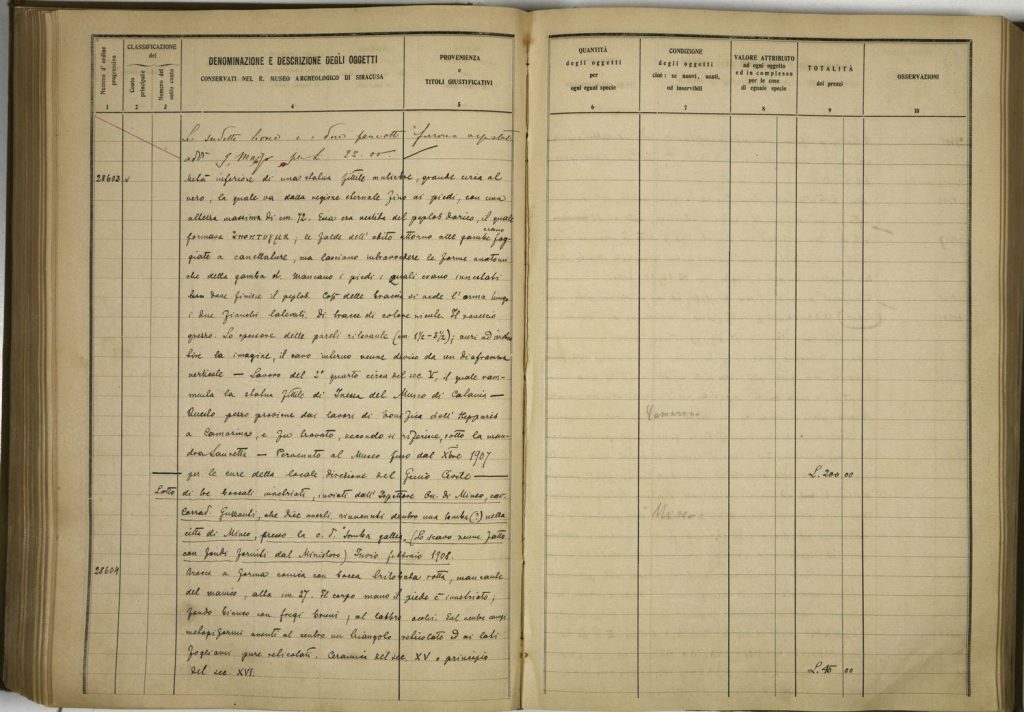 Numero d'ordine progressivo
CLASSIFICAZIONE del
Conto principale
Numero del sotto conto
DENOMINAZIONE E DESCRIZIONE DEGLI OGGETTI
CONSERVATI NEL R. MUSEO ARCHEOLOGICO DI SIRACUSA
PROVENIENZA
e
TITOLI GIUSTIFICATIVI
1 2 3 4 5
e i due furono acquistati
per L. 22.00
28603
Metà inferiore di una statua fittile muliebre, grande circa al
vero, la quale va dalla regione sternale fino ai piedi, con una
altezza massima di cm. 72. Essa era vestita del peplos dorico, il quale
formava ; le falde dell'abito attorno alle gambe erano fog-
giate a canellature, ma lasciano intravedere le forme anatomi-
che della gamba d. Mancano i piedi i quali erano innestati
dove finisce il peplos. Così delle braccia si vede l'orma lungo
i due fianchi laterali. Di tracce di colore niente. Il rovescio
grezzo. Lo spessore delle pareti rilevante (cm 1½-3½);
la imagine, il cavo interno venne diviso da un diaframma
verticale — Lavoro del 2° quarto circa del sec. V, il quale ram-
menta la statua fittile di Inessa del Museo di Catania —
Questo pezzo proviene dai lavori di bonifica dell'Hipparis
a Camarina, e fu trovato, secondo si riferisce, sotto la man-
dra Lauretta — Pervenuto al Museo fino dal Xbre 1907
per le cure della locale direzione del Genio Civile —
Lotto
di tre boccali invetriati, inviati dall'Ispettore On. di Mineo, cav.
Corrado Guzzanti, che dice averli rinvenuti dentro una tomba (?) nella
città di Mineo, presso la c. d. "tomba gallica" (Lo scavo venne fatto
con fondi forniti dal Ministero) Invio febbraio 1908.
28604
Brocca a forma conica con bocca trilobata rotta, mancante
del manico, alta cm. 27. Il corpo meno il piede è invetriato;
fondo bianco con fregi bruni; al labbro ovoli. Sul ventre campi
metopiformi aventi al centro un triangolo reticolato ed ai lati
fogliami pure reticolati. Ceramica del sec. XV o principio
del sec. XVI.
QUANTITÀ
degli oggetti
per
ogni egual specie
CONDIZIONE
degli oggetti
cioè: se nuovi, usati,
od inservibili
VALORE ATTRIBUITO
ad ogni oggetto
ed in complesso
per le cose
di eguale specie
TOTALITÀ
dei prezzi
OSSERVAZIONI
6 7 8 9 10
Camarina
L. 200 00
Mineo
L. 45 00